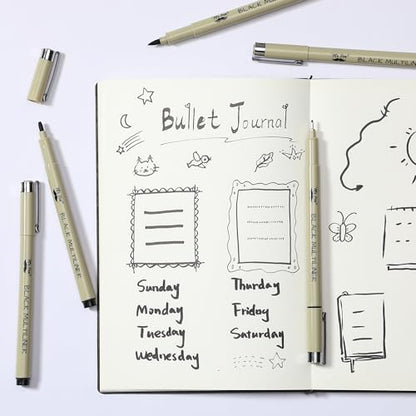 Bullet Journal
Sunday
Monday
Tuesday
Wednesday
Thurday
Friday
Saturday
BLACK MULTILINER
BLACK MULTILINER
BLACK MULTILINER
BLACK MULTILINER
BLACK MULTILINER